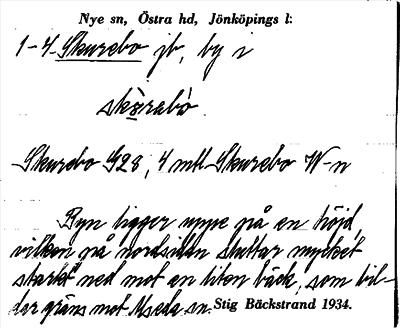 Nye sn, Östra hd, Jönköpings l:
1-4 Skurebo jb, by i
skö̀rabò
Skurebo G28, 4 mtl Skurebo W-n
Byn ligger uppe på en höjd,
vilken på nordsidan sluttar mycket
starkt ned mot en liten bäck, som bil-
dar gräns mot Alseda sn. Stig Bäckstrand 1934.